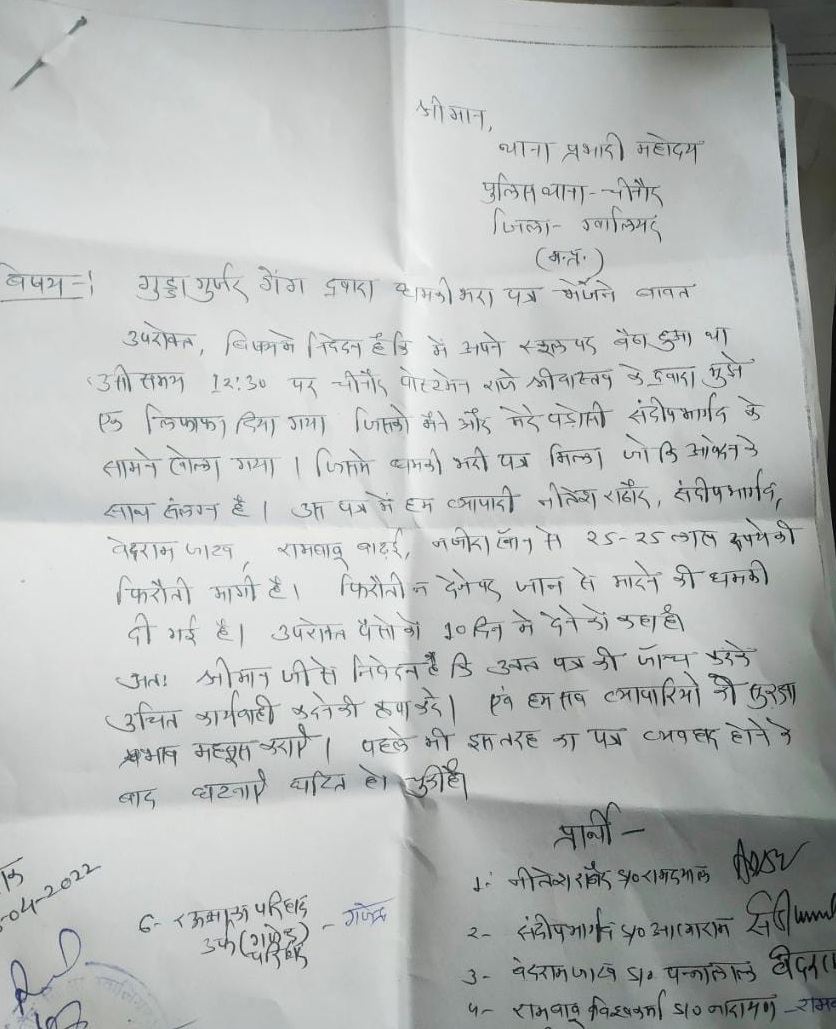 श्रीमान,
थाना प्रभारी महोदय
पुलिस थाना - चीनौर
जिला - ग्वालियर
(म.प्र.)
विषय -: गुड्डा गुर्जर गैंग द्वारा धमकी भरा पत्र भेजने बावत
उपरोक्त, विषय में निवेदन है कि में अपने स्थल पर बैठा हुआ था
उसी समय 12:30 पर चीनौर पोस्टमेन राजे श्रीवास्तव के द्वारा मुझे
एक लिफाफा दिया गया जिसको मैंने और मेरे पडोसी संदीप भार्गव के
सामने खोला गया । जिसमे धमकी भरी पत्र मिला जो कि आवेदन के
साथ संलग्न है । उस पत्र में हम व्यापारी नीतेश राठौर, संदीप भार्गव,
वेदराम जाटव, रामबाबू बाढई, नजीरा खॉन से 25-25 लाख रूपये की
फिरौती मागी है । फिरौती न देने पर जान से मारने की धमकी
दी गई है । उपरोक्त पैसो को 10 दिन मे देने को कहा है।
अतः श्रीमान जी से निवेदन है कि उक्त पत्र की जॉच करके
उचित कार्यवाही करने की कृपा करे । एवं हम सब व्यापारियो को सुरक्षा
भाव महशूस कराऐ । पहले भी इस तरह का पत्र व्यवहार होने के
बाद घटनाऐ घटित हो चुकी है।
प्रार्थी -
1- नीतेश राठौर S/o रामदयाल
-04-2022
6- रामपाल परिहार - गजेन्द्र
उर्फ (गजेन्द्र परिहार)
2- संदीप भार्गव S/o आत्माराम
3- वेदराम जाटव S/o पन्नालाल वेदरा
4- रामबाबू विश्वकर्मा S/o नारायण - राम